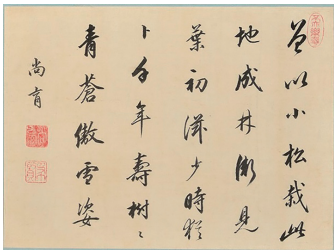 曾以小松栽此
地成林漸見
葉初滋少時
卜千年壽樹〻
青蒼傲雪姿
尚育